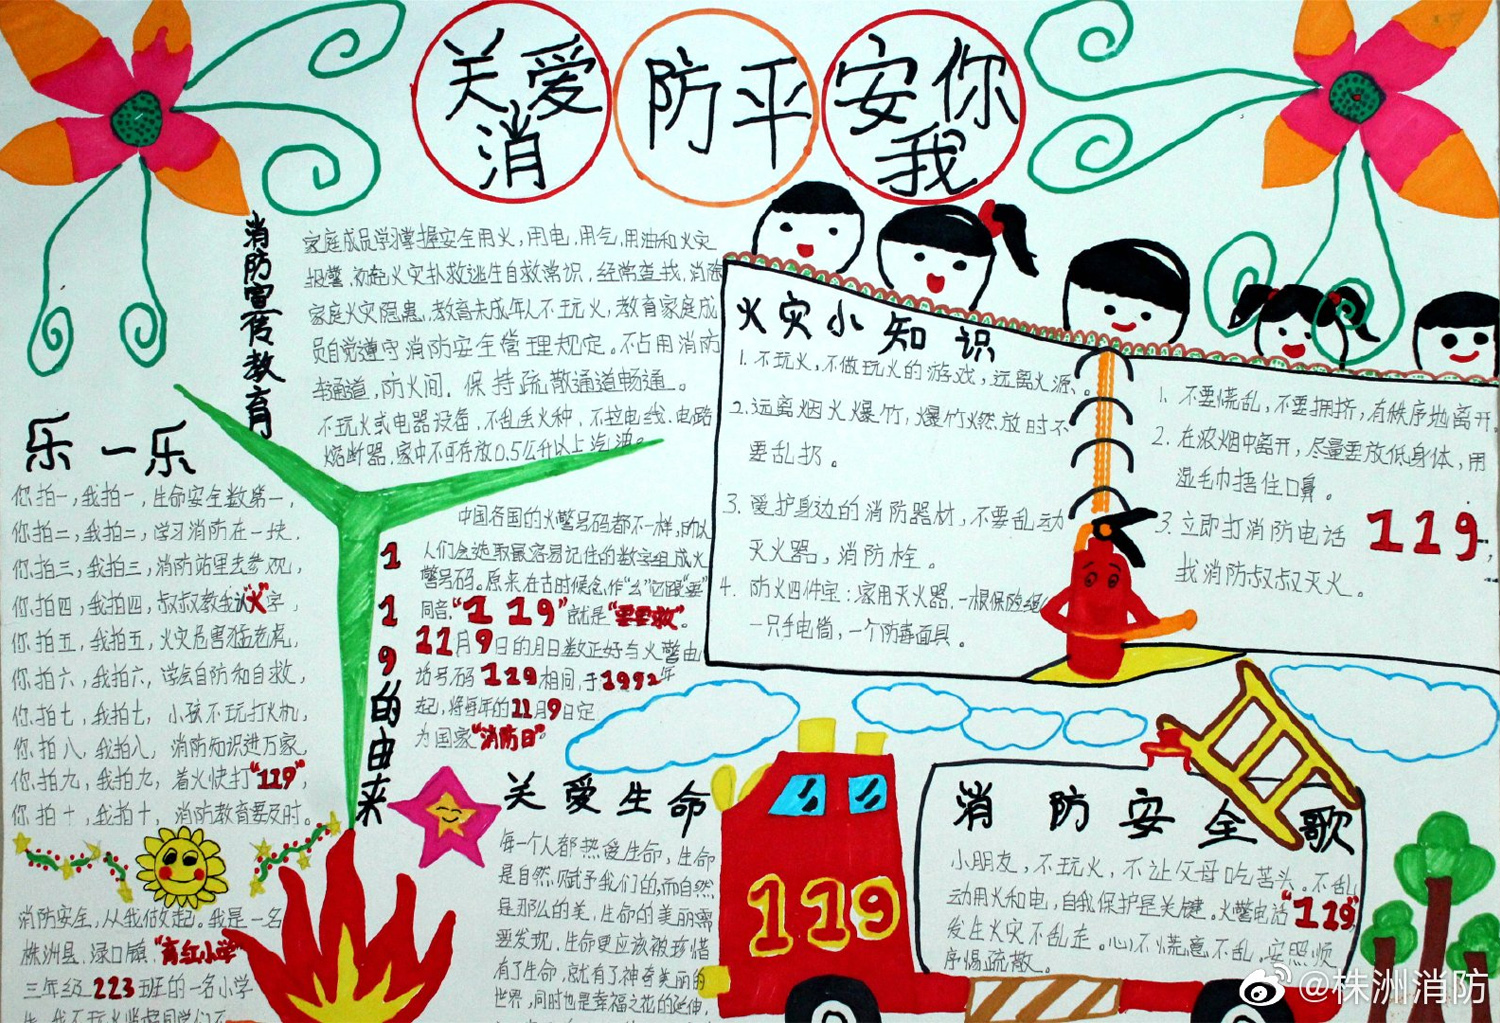 关爱
消
防平
安你
我
消防宣传教育
家庭成员学习掌握安全用火,用电,用气,用油和火灾
报警,初起火灾扑救逃生自救常识,经常查找,消除
家庭火灾隐患,教育未成年人不玩火,教育家庭成
员自觉遵守消防安全管理规定。不占用消防
车通道,防火间.保持疏散通道畅通。
不玩火或电器设备,不乱丢火种,不拉电线.电路
熔断器.家中不可存放0.5公升以上汽油。
乐一乐
你拍一,我拍一,生命安全数第一,
你拍二,我拍二,学习消防在一块,
你拍三,我拍三,消防站里去参观,
你拍四,我拍四,叔叔教我认"火"字,
你拍五,我拍五,火灾危害猛老虎,
你拍六,我拍六,学会自防和自救,
你拍七,我拍七,小孩不玩打火机,
你拍八,我拍八,消防知识进万家,
你拍九,我拍九,着火快打"119",
你拍十,我拍十,消防教育要及时。
消防安全,从我做起。我是一名
株洲县.渌口镇."育红小学"
三年级223班的一名小学
119的由来
中国各国的火警号码都不一样,
人们会选取最容易记住的数字组成火
警号码。原来在古时候念作"幺"它跟"要"
同音."119"就是"要要救"。
11月9日的月日数正好与火警电
话号码119相同,于1992年
起,将每年的11月9日定
为国家"消防日"
关爱生命
每一个人都热爱生命,生命
是自然赋予我们的,而自然
是那么的美,生命的美丽需
要发现,生命更应该被珍惜
有了生命,就有了神奇美丽的
世界,同时也是幸福之花的延伸,
火灾小知识
1.不玩火,不做玩火的游戏,远离火源。
2.远离烟火爆竹,爆竹燃放时不
要乱扔。
3.爱护身边的消防器材,不要乱动
灭火器,消防栓。
4.防火四件宝:家用灭火器.一根保险绳
一只手电筒,一个防毒面具。
1.不要慌乱,不要拥挤,有秩序地离开.
2.在浓烟中离开,尽量要放低身体,用
湿毛巾捂住口鼻。
3.立即打消防电话119,
找消防叔叔灭火。
119
消防安全歌
小朋友,不玩火,不让父母吃苦头。不乱
动用火和电,自我保护是关键。火警电话"119"
发生火灾不乱走。心不慌意不乱,安照顺
序惕疏散。
@株洲消防